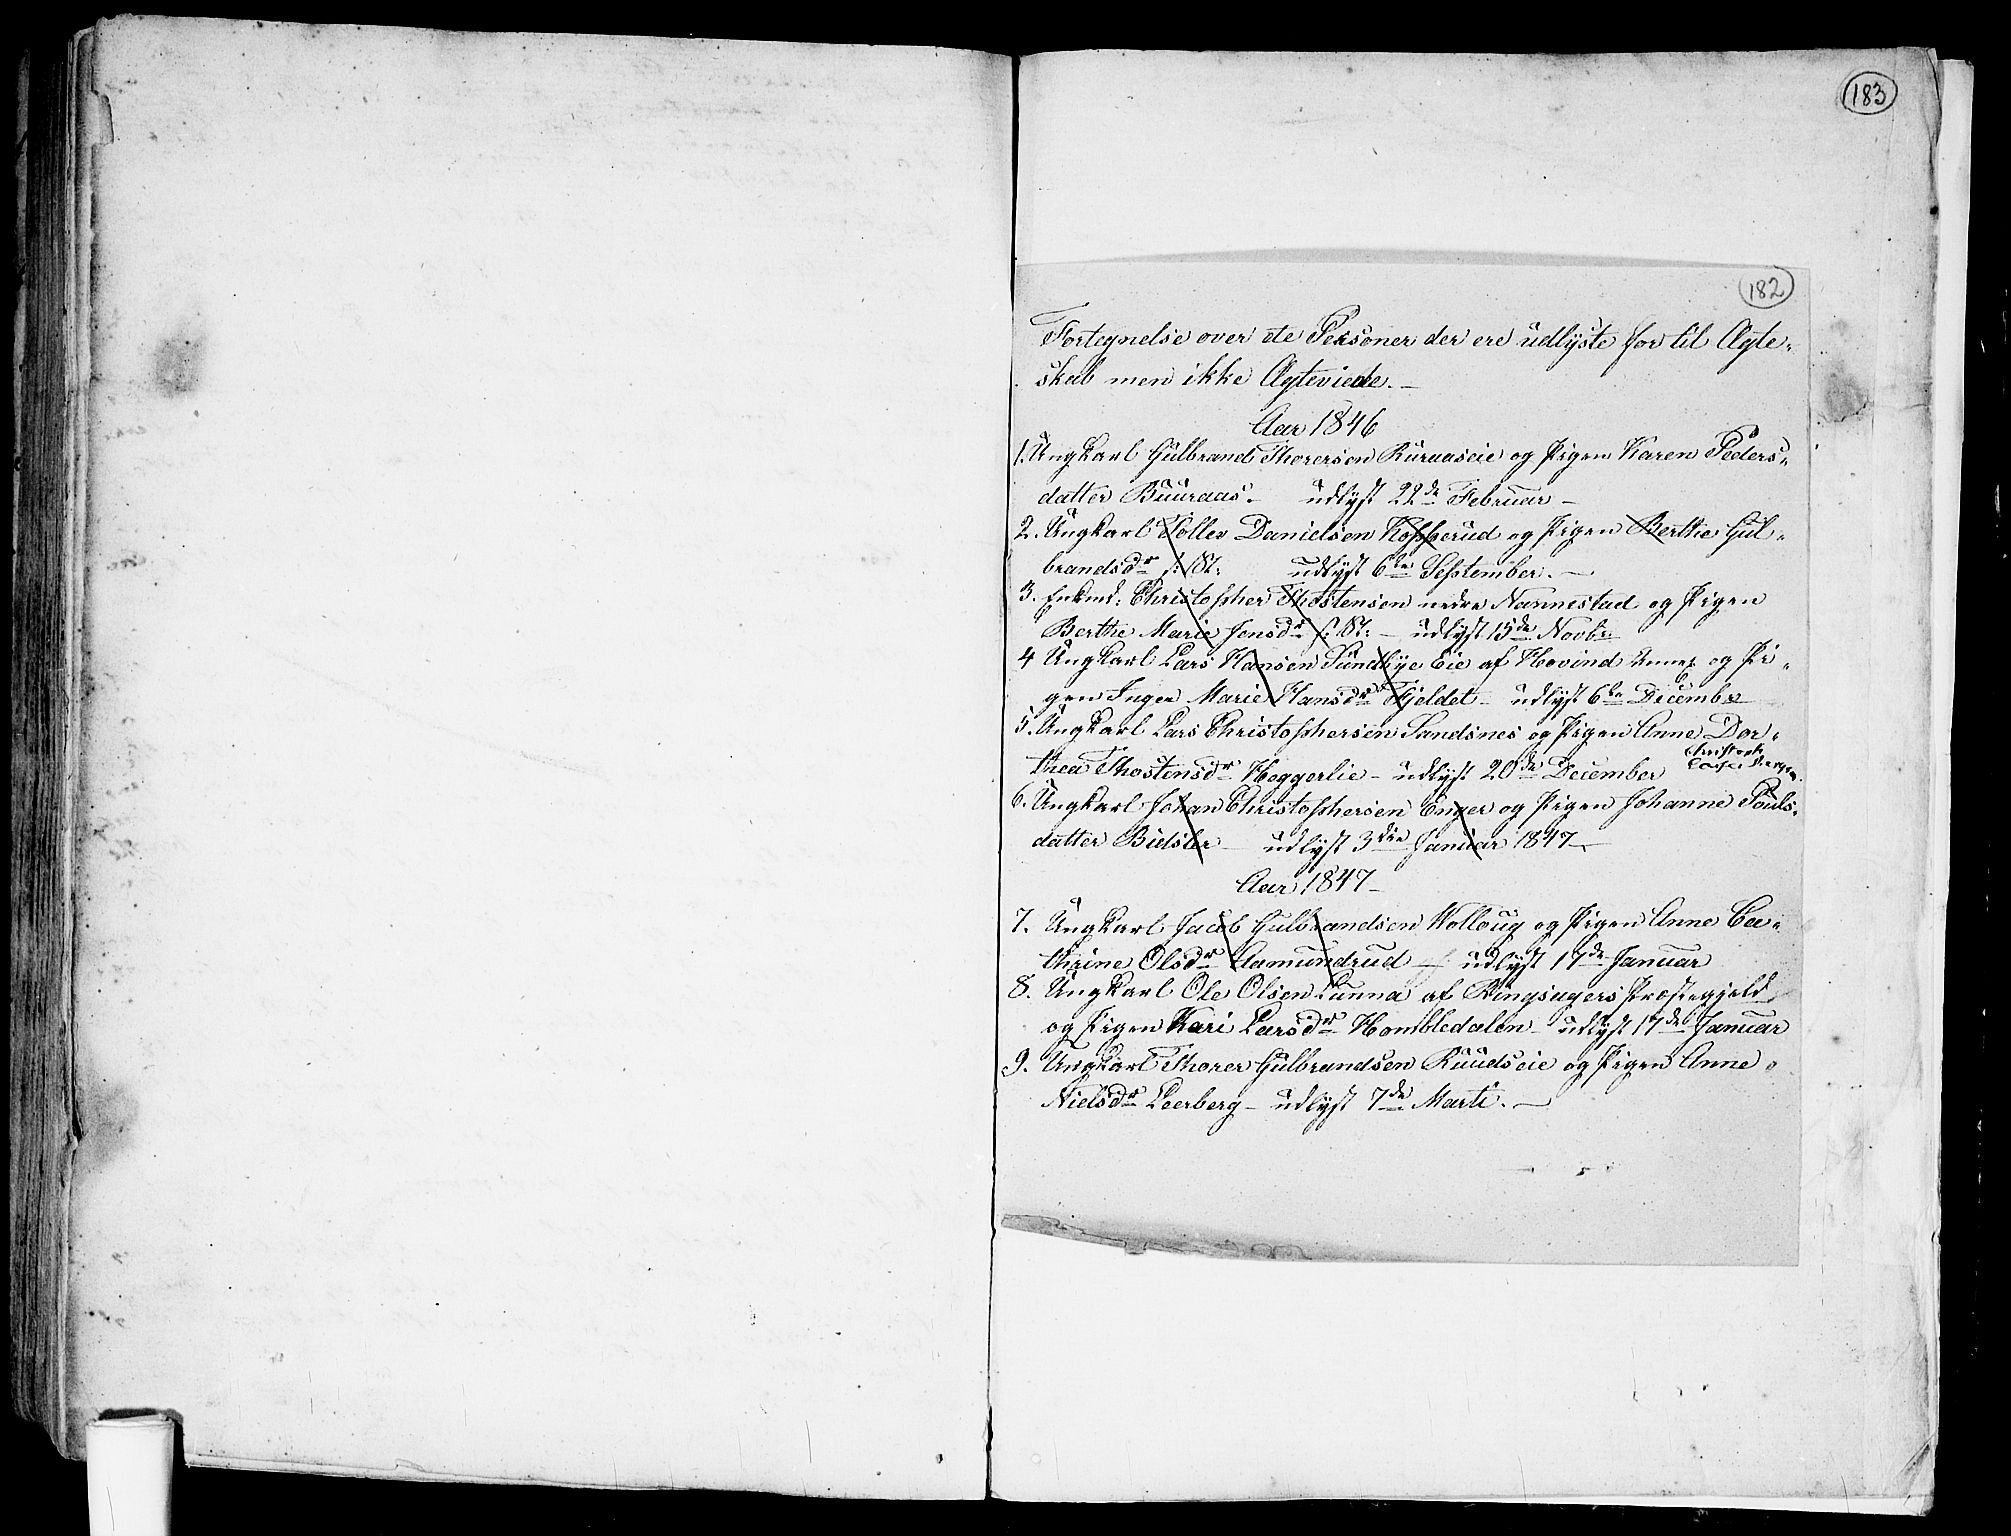 183
182
Fortegnelse over de Personer der ere udlyste for til Ægte-
skab men ikke Ægteviede.
Aar 1846
1. Ungkarl Gulbrand Thorersen Buraaseie og Pigen Karen Peders-
datter Buuraas. udlyst 22de Februar
2. Ungkarl Tollev Danielsen Kopperud og Pigen Berthe Gul-
brandsdr udlyst 6te September.
3. Enkmd: Christopher Thostensen nedre Nannestad og Pigen
Berthe Marie Jensdr udlyst 15de Novbr
4 Ungkarl Lars Hansen Sundbye Eie af Hovind Annex og Pi-
gen Inger Marie Hansdr Fjeldet udlyst 6te Decembr
5. Ungkarl Lars Christophersen Sandsnes og Pigen Anne Dor-
thea Thostensdr Heggerlie udlyst 20de December
6. Ungkarl Johan Christophersen Enger og Pigen Johanne Pouls-
datter Bidsler udlyst 3die Januar 1847
Aar 1847
7. Ungkarl Jacob Gulbrandsen Holloug og Pigen Anne Ca-
thrine Olsdr Aamundrud udlyst 17de Januar
8. Ungkarl Ole Olsen Lunna af Ringsagers Præstegjeld
og Pigen Kari Larsdr Hombledalen udlyst 17de Januar
9. Ungkarl Thorer Gulbrandsen Ruudseie og Pigen Anne
Nielsdr Leerberg udlyst 7de Marti.